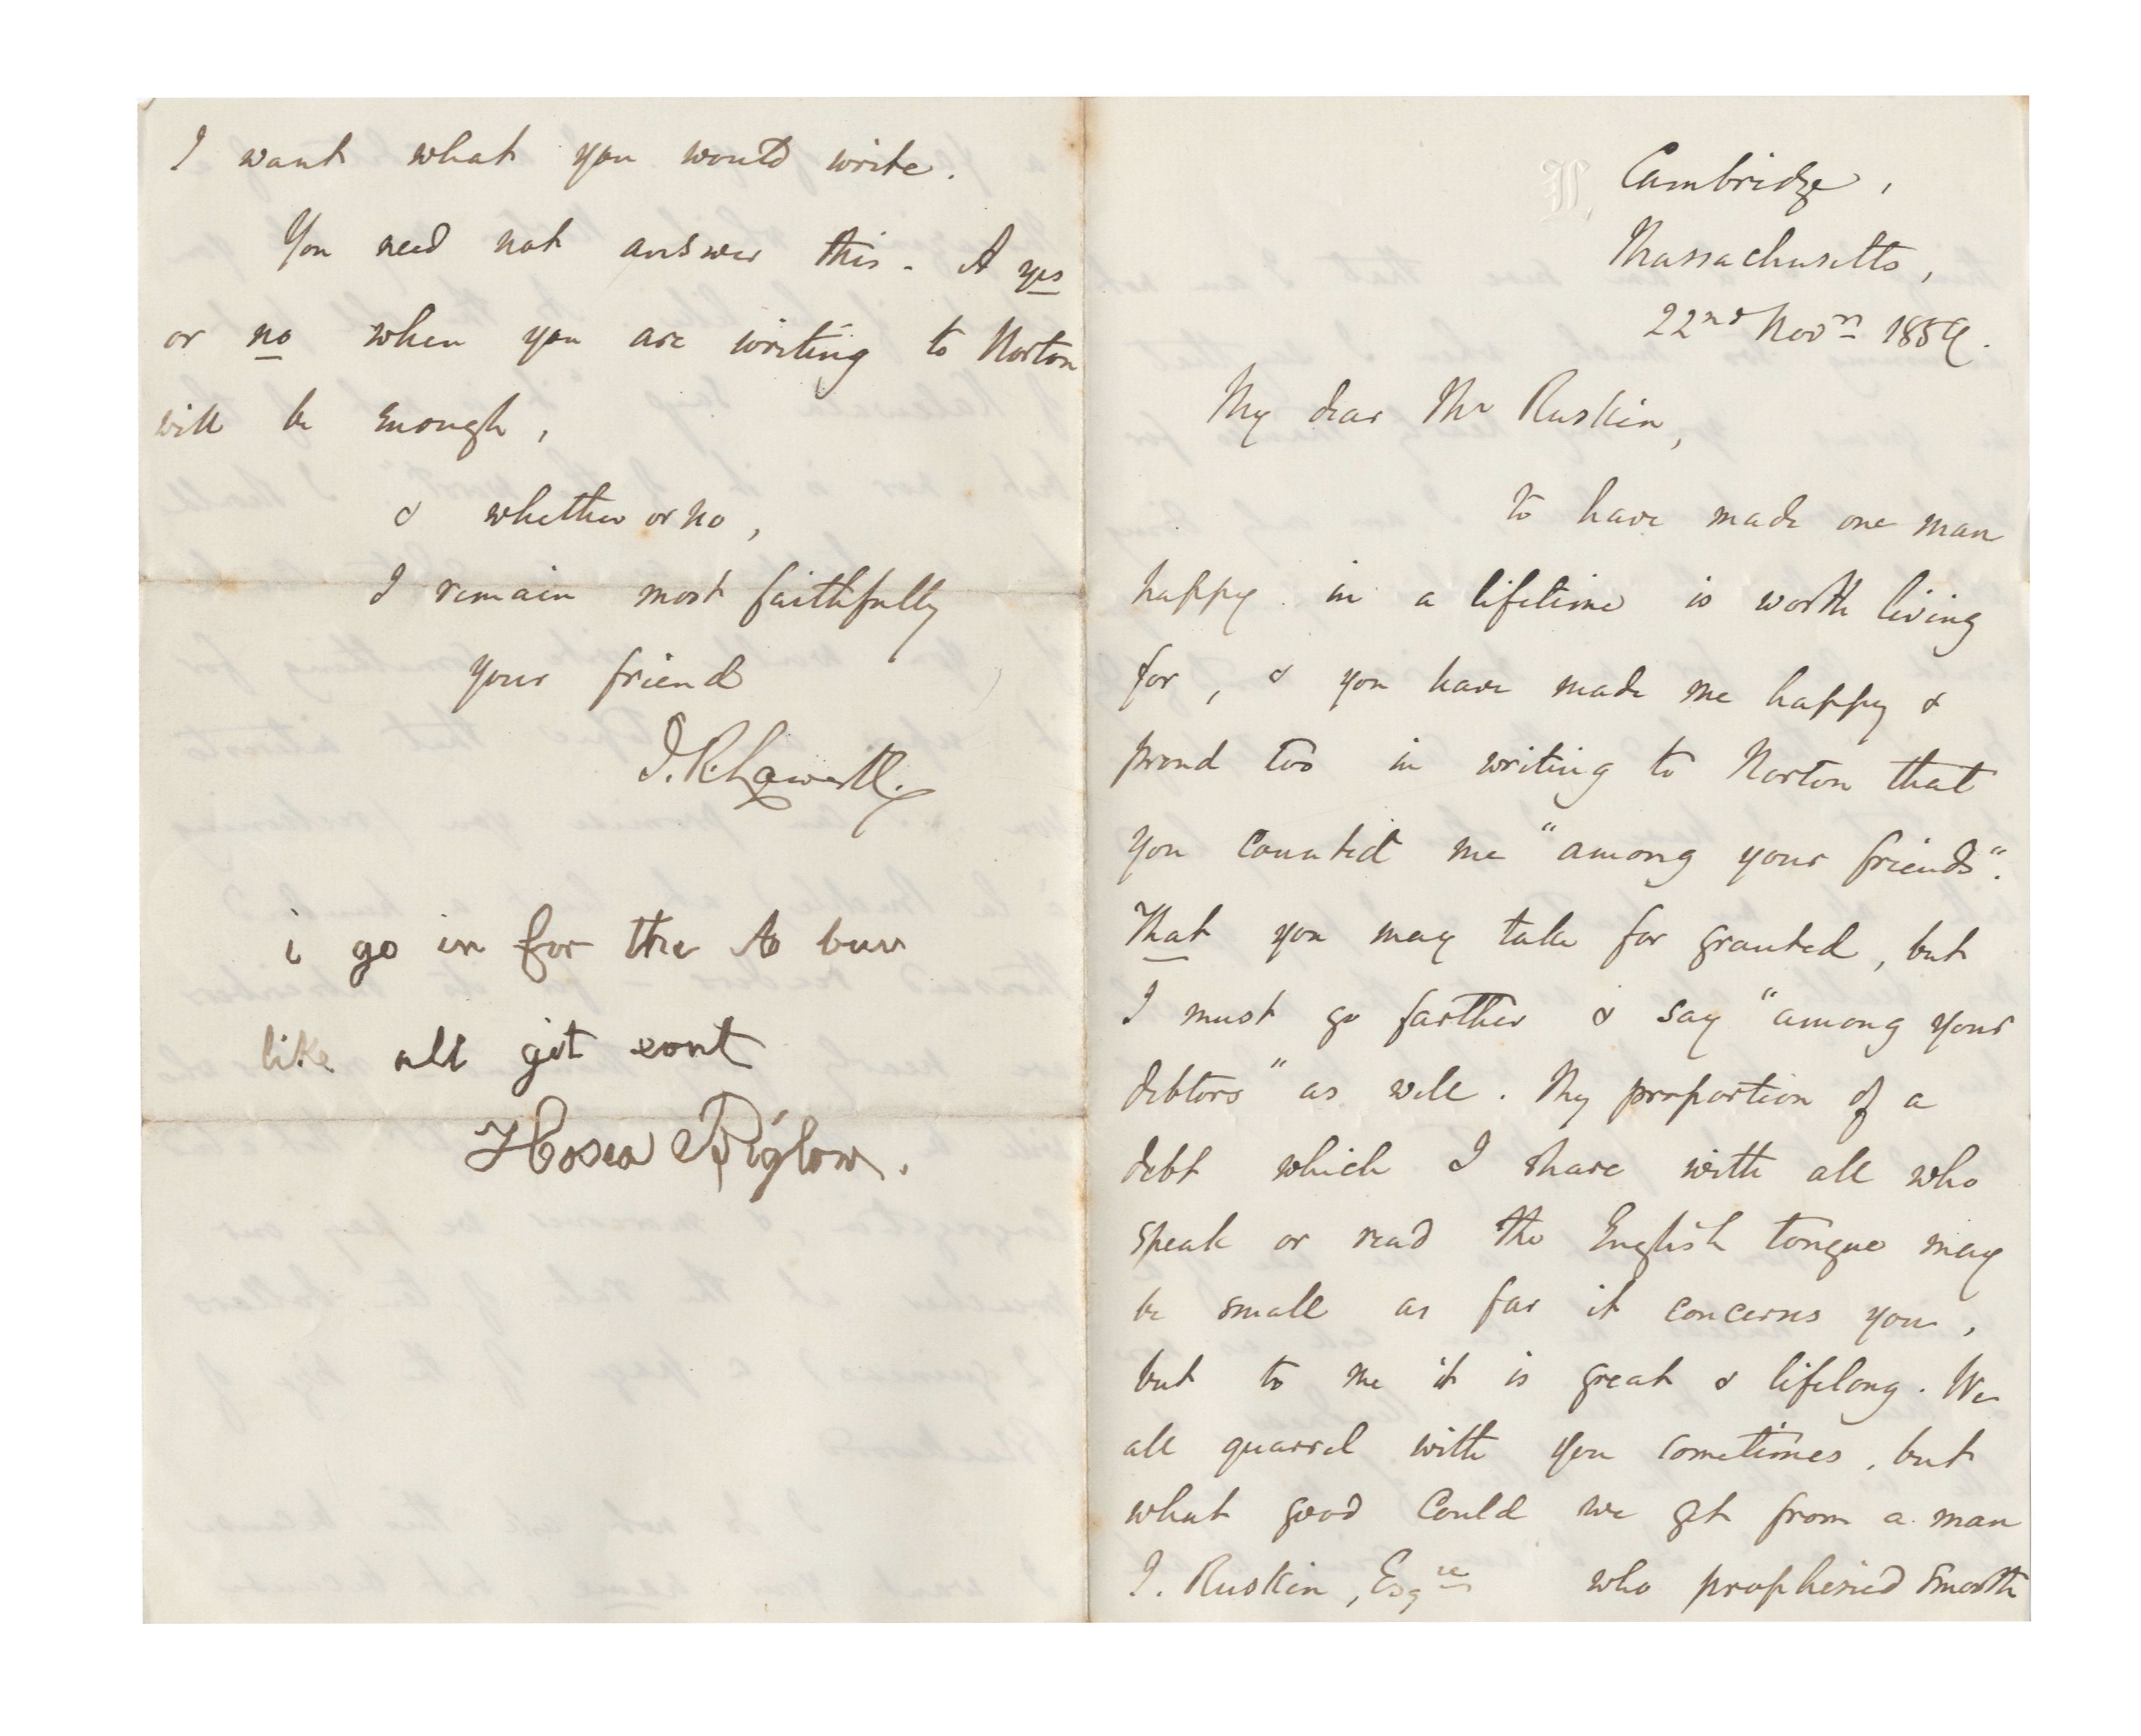 I want what you would write.
You need not answer this. A yes
or no when you are writing to Norton
will be enough,
& whether or no,
I remain most faithfully
your friend
J. R. Lowell.
i go in for the A buv
like all git eout
Hosea Biglow.
Cambridge,
Massachusetts,
22nd Novr 1859.
My dear Mr Ruskin,
to have made one man
happy in a lifetime is worth living
for, & you have made me happy &
proud too in writing to Norton that
you counted me "among your friends".
That you may take for granted, but
I must go farther & say "among your
debtors" as well. My proportion of a
debt which I share with all who
speak or read the English tongue may
be small as far it concerns you,
but to me it is great & lifelong. We
all quarrel with you sometimes, but
what good could we get from a man
J. Ruskin, Esqre who prophesied smooth